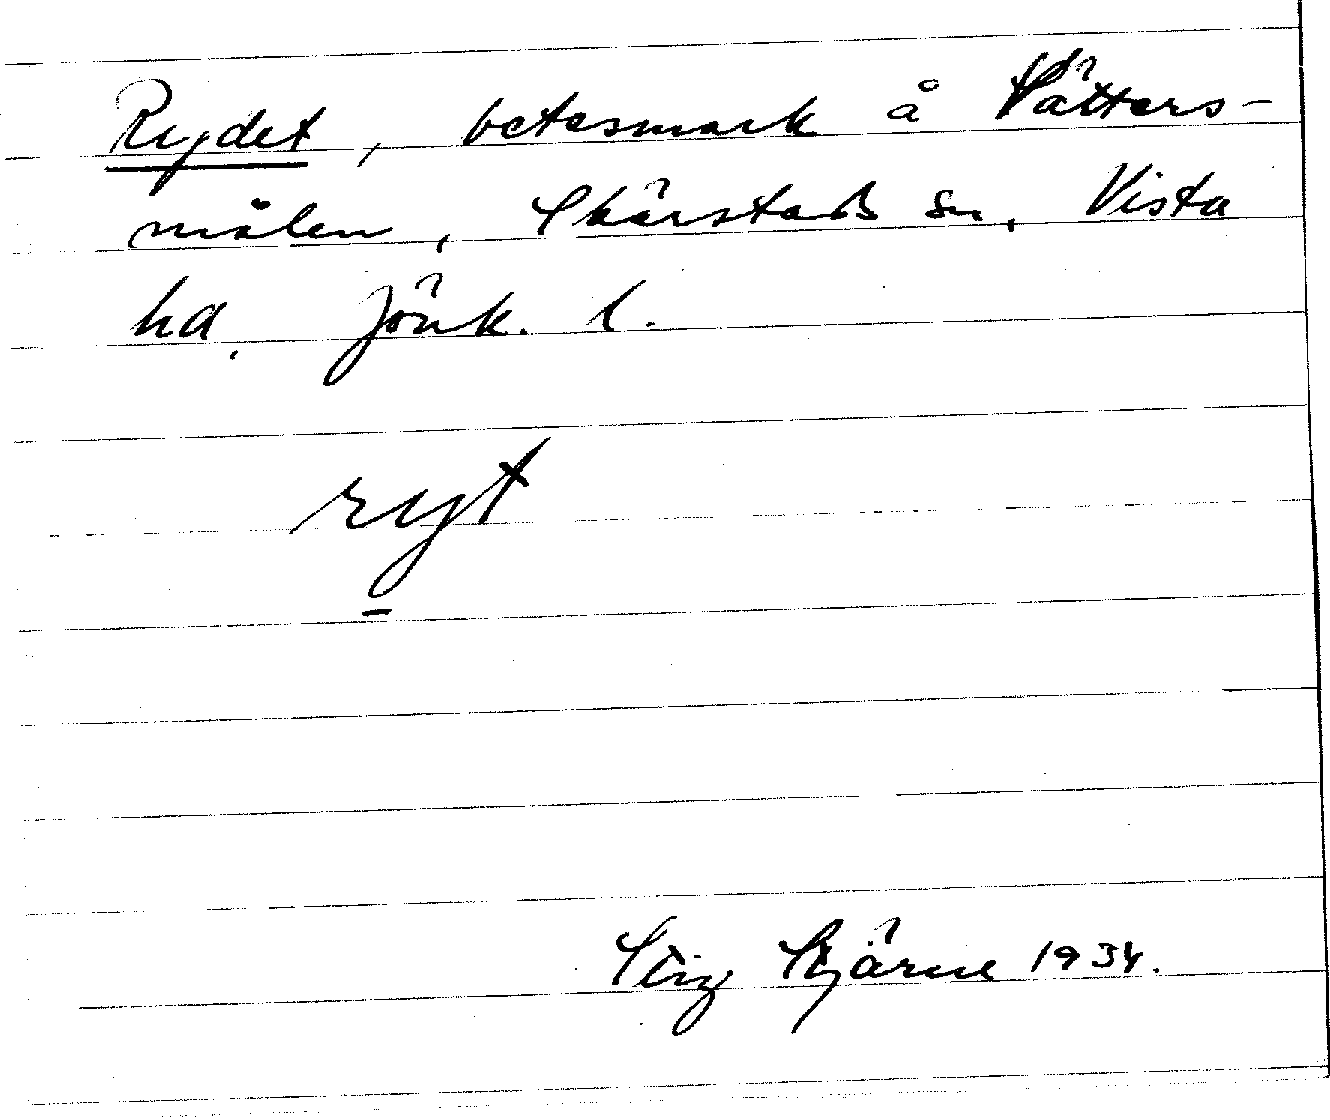 Rydet, betesmark å Vätters-
målen, Skärstads sn, Vista
hd, Jönk. l.
ryt
Stig Stjärne 1934.